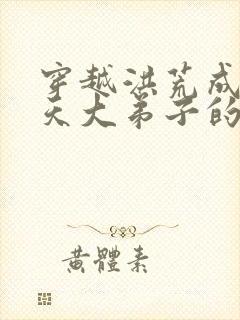 穿越洪荒成
天大弟子的
黄體素